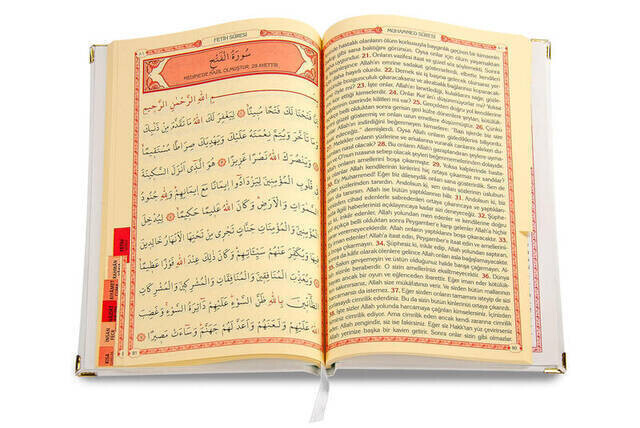 FETİH SÛRESİ
سُورَةُ الْفَتْحِ
MEDİNE'DE NAZİL OLMUŞTUR, 29 AYETTİR
اللهِ الرَّحْمٰنِ الرَّحِيمِ
فَتَحْنَا لَكَ فَتْحًا مُبِينًا لِيَغْفِرَ لَكَ اللهُ مَا تَقَدَّمَ مِنْ ذَنْبِكَ
وَمَا تَأَخَّرَ وَيُتِمَّ نِعْمَتَهُ عَلَيْكَ وَيَهْدِيَكَ صِرَاطًا مُسْتَقِيمًا
وَيَنْصُرَكَ اللهُ نَصْرًا عَزِيزًا هُوَ الَّذِي أَنْزَلَ السَّكِينَةَ
فِي قُلُوبِ الْمُؤْمِنِينَ لِيَزْدَادُوا إِيمَانًا مَعَ إِيمَانِهِمْ وَلِلّٰهِ جُنُودُ
السَّمٰوَاتِ وَالْأَرْضِ وَكَانَ اللهُ عَلِيمًا حَكِيمًا لِيُدْخِلَ
الْمُؤْمِنِينَ وَالْمُؤْمِنَاتِ جَنَّاتٍ تَجْرِي مِنْ تَحْتِهَا الْأَنْهَارُ خَالِدِينَ
فِيهَا وَيُكَفِّرَ عَنْهُمْ سَيِّئَاتِهِمْ وَكَانَ ذٰلِكَ عِنْدَ اللهِ فَوْزًا عَظِيمًا
وَيُعَذِّبَ الْمُنَافِقِينَ وَالْمُنَافِقَاتِ وَالْمُشْرِكِينَ وَالْمُشْرِكَاتِ
الظَّانِّينَ بِاللهِ ظَنَّ السَّوْءِ عَلَيْهِمْ دَائِرَةُ السَّوْءِ وَغَضِبَ
اللهُ عَلَيْهِمْ وَلَعَنَهُمْ وَأَعَدَّ لَهُمْ جَهَنَّمَ وَسَاءَتْ مَصِيرًا
81
FETİH
RAHMÂN
İNSÂN
KISA
MUHAMMED SÛRESİ
hastalık olanların ölüm korkusuyla baygınlık geçiren bir kimsenin
gibi sana baktığını görürsün. Oysa onlar için
21. Onların vazifesi itaat ve güzel söz söylemektir. İş
Allah'ın emrine sadakat gösterselerdi, elbette kendileri
daha hayırlı olurdu. 22. Demek siz iş başına gelecek olursanız yer-
yüzünde bozgunculuk çıkaracaksınız ve akrabalık bağlarını koparacaksınız
öyle mi? 23. İşte onlar, Allah'ın lanetlediği, kulaklarını sağır, gözle-
rini kör ettiği kimselerdir. 24. Onlar Kur'an'ı düşünmüyorlar mı?
üzerinde kilitleri mi var? 25. Gerçekten doğru yol kendilerine
belli olduktan sonra geri küfre dönenlere şeytan, kötülük-
güzel göstermiş ve onları uzun emellere düşürmüştür. 26. Çünkü
Allah'ın indirdiğini beğenmeyen kimselere: "Bazı işlerde size ita-
edeceğiz." demişlerdi. Oysa Allah onların gizlediklerini biliyor.
melekler onların yüzlerine ve arkalarına vurarak canlarını alırken du-
nasıl olacak? 28. Bu onların Allah'ı gazaplandıran şeylere uyma-
O'nun rızasına sebep olacak şeyleri beğenmemelerinden dolayıdır.
onların amellerini boşa çıkarmıştır. 29. Yoksa kalplerinde hasta-
olanlar Allah kendilerinin kinlerini hiç ortaya çıkarmaz mı sandılar?
30. Ey Muhammed! Eğer biz dileseydik onları sana gösterirdik. Sen de
yüzlerinden tanırdın. Andolsun ki, sen onları sözlerinin üslubun-
dan tanırsın. Allah ise bütün yaptıklarınızı bilir. 31. Andolsun ki, biz
içinizden cihad edenlerle sabredenleri ortaya çıkarıncaya ve yaptığınız
ilgili haberlerinizi açıklayıncaya kadar sizi deneyeceğiz. 32. Şüphe-
siz ki, inkâr edenler, Allah yolundan men edenler ve kendilerine doğru
belli olduktan sonra, Peygamber'e karşı gelenler Allah'a hiçbir
veremeyeceklerdir. Allah onların yaptıklarını boşa çıkaracaktır. 33.
Ey iman edenler! Allah'a itaat edin, Peygamber'e itaat edin ve amellerinizi
boşa çıkarmayın. 34. Şüphesiz ki, inkâr edip, Allah yolundan saptıran,
sonra da kâfir olarak ölenlere gelince Allah onları asla bağışlamayacaktır. 35.
Sakın gevşemeyin ve üstün olduğunuz halde barışa çağırmayın. Al-
lah sizinle beraberdir. O sizin amellerinizi eksiltmeyecektir. 36. Dünya
ancak bir oyun ve eğlenceden ibarettir. Eğer iman eder kötülük-
sakınırsanız, Allah size mükâfatınızı verir. Ve sizden bütün mallarınızı
istemez. 37. Eğer sizden onların tamamını isteyip de sizi
cimrilik ederdiniz. Bu da sizin bütün kinlerinizi ortaya çıkarırdı.
38. İşte sizler Allah yolunda harcamaya çağrılan kimselersiniz. İçinizden
cimrilik ediyor. Ama cimrilik eden ancak kendi zararına cimrilik
eder. Allah zengindir, siz ise fakirsiniz. Eğer siz Hak'tan yüz çevirirseniz
Allah yerinize başka bir kavim getirir. Sonra onlar sizin gibi olmazlar.
80